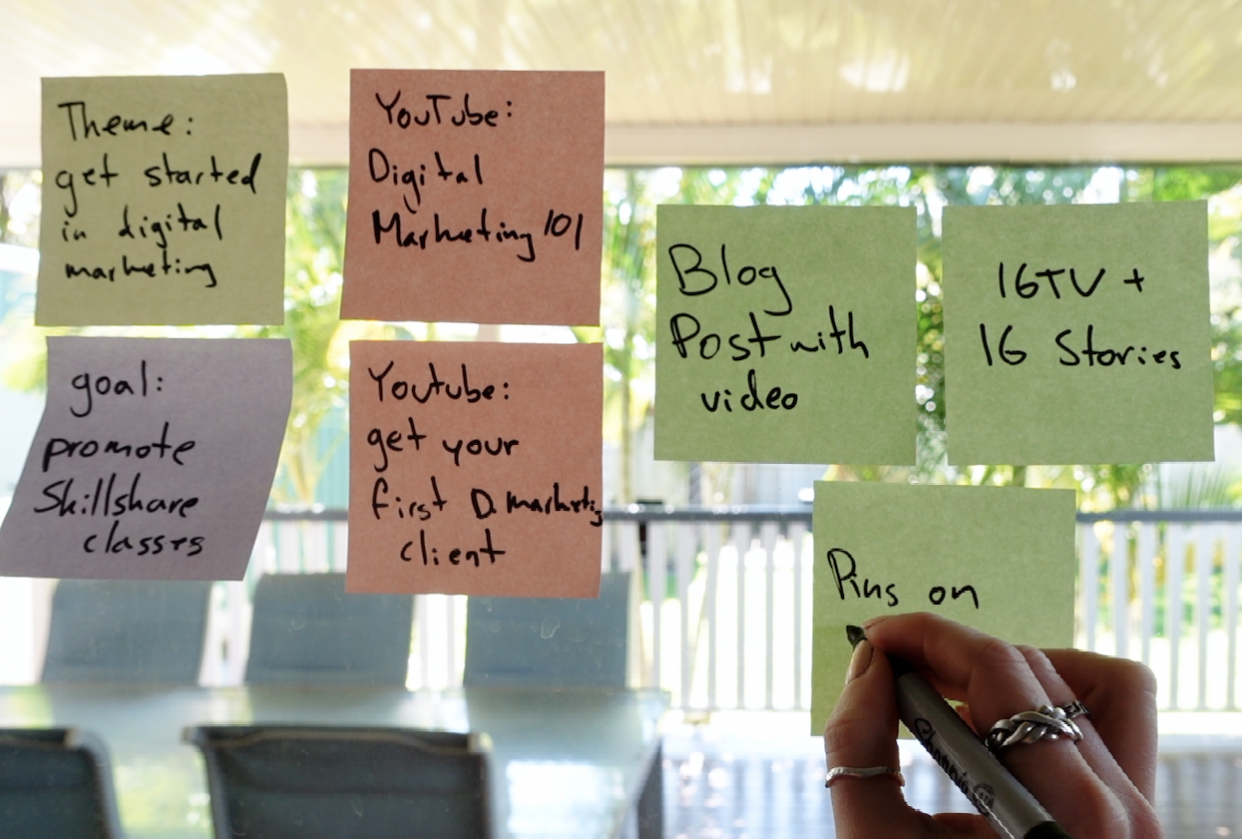 Theme:
get started
in digital
marketing
goal:
promote
Skillshare
classes
YouTube:
Digital
Marketing 101
Youtube:
get your
first D. marketing
client
Blog
Post with
video
IGTV +
IG Stories
Pins on
Sharpie